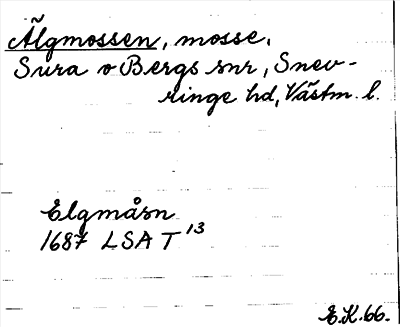 Älgmossen, mosse.
Sura o Bergs snr, Snev-
ringe hd, Västm. l.
Elgmåsn
1687 LSA T 13
E.K. 66.